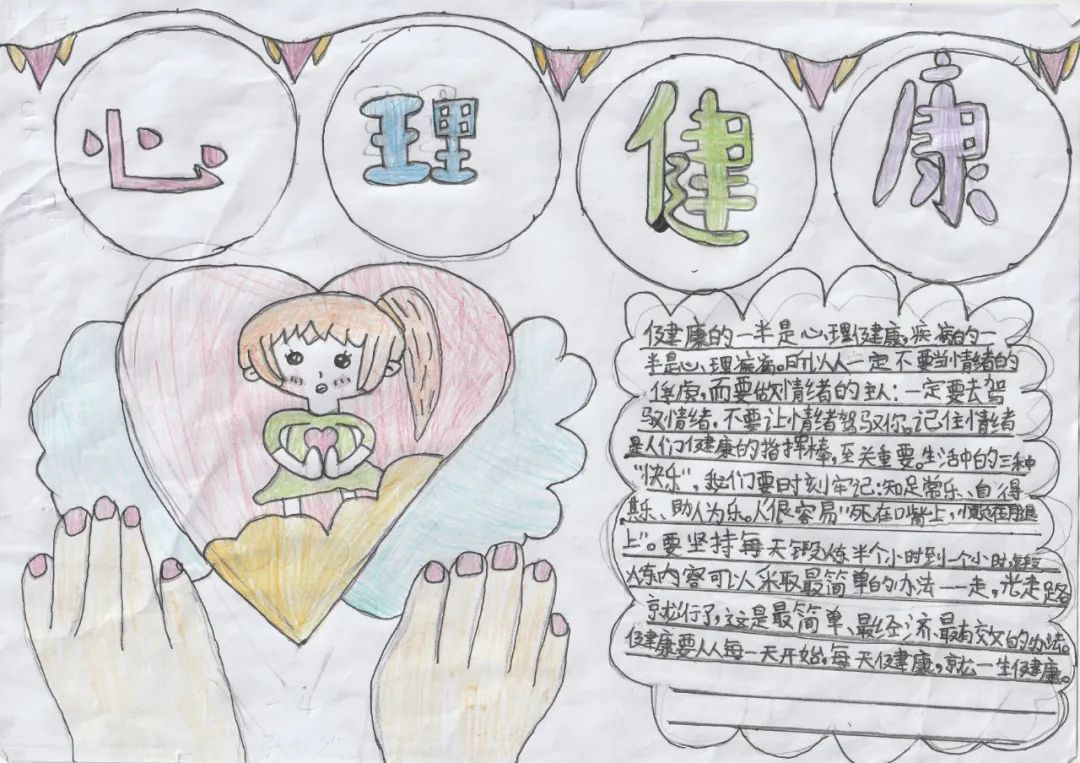 心理健康
健康的一半是心理健康,疾病的一
半是心理疾病。所以人一定不要当情绪的
俘虏,而要做情绪的主人;一定要去驾
驭情绪,不要让情绪驾驭你。记住情绪
是人们健康的指挥棒,至关重要。生活中的三种
“快乐”,我们要时刻牢记:知足常乐、自得
其乐、助人为乐。人很容易“死在口嘴上,懒在腿
上”。要坚持每天锻炼半个小时到一个小时,锻
炼内容可以采取最简单的办法一走,光走路
就行了,这是最简单、最经济、最有效的办法。
健康要从每一天开始,每天健康,就一生健康。